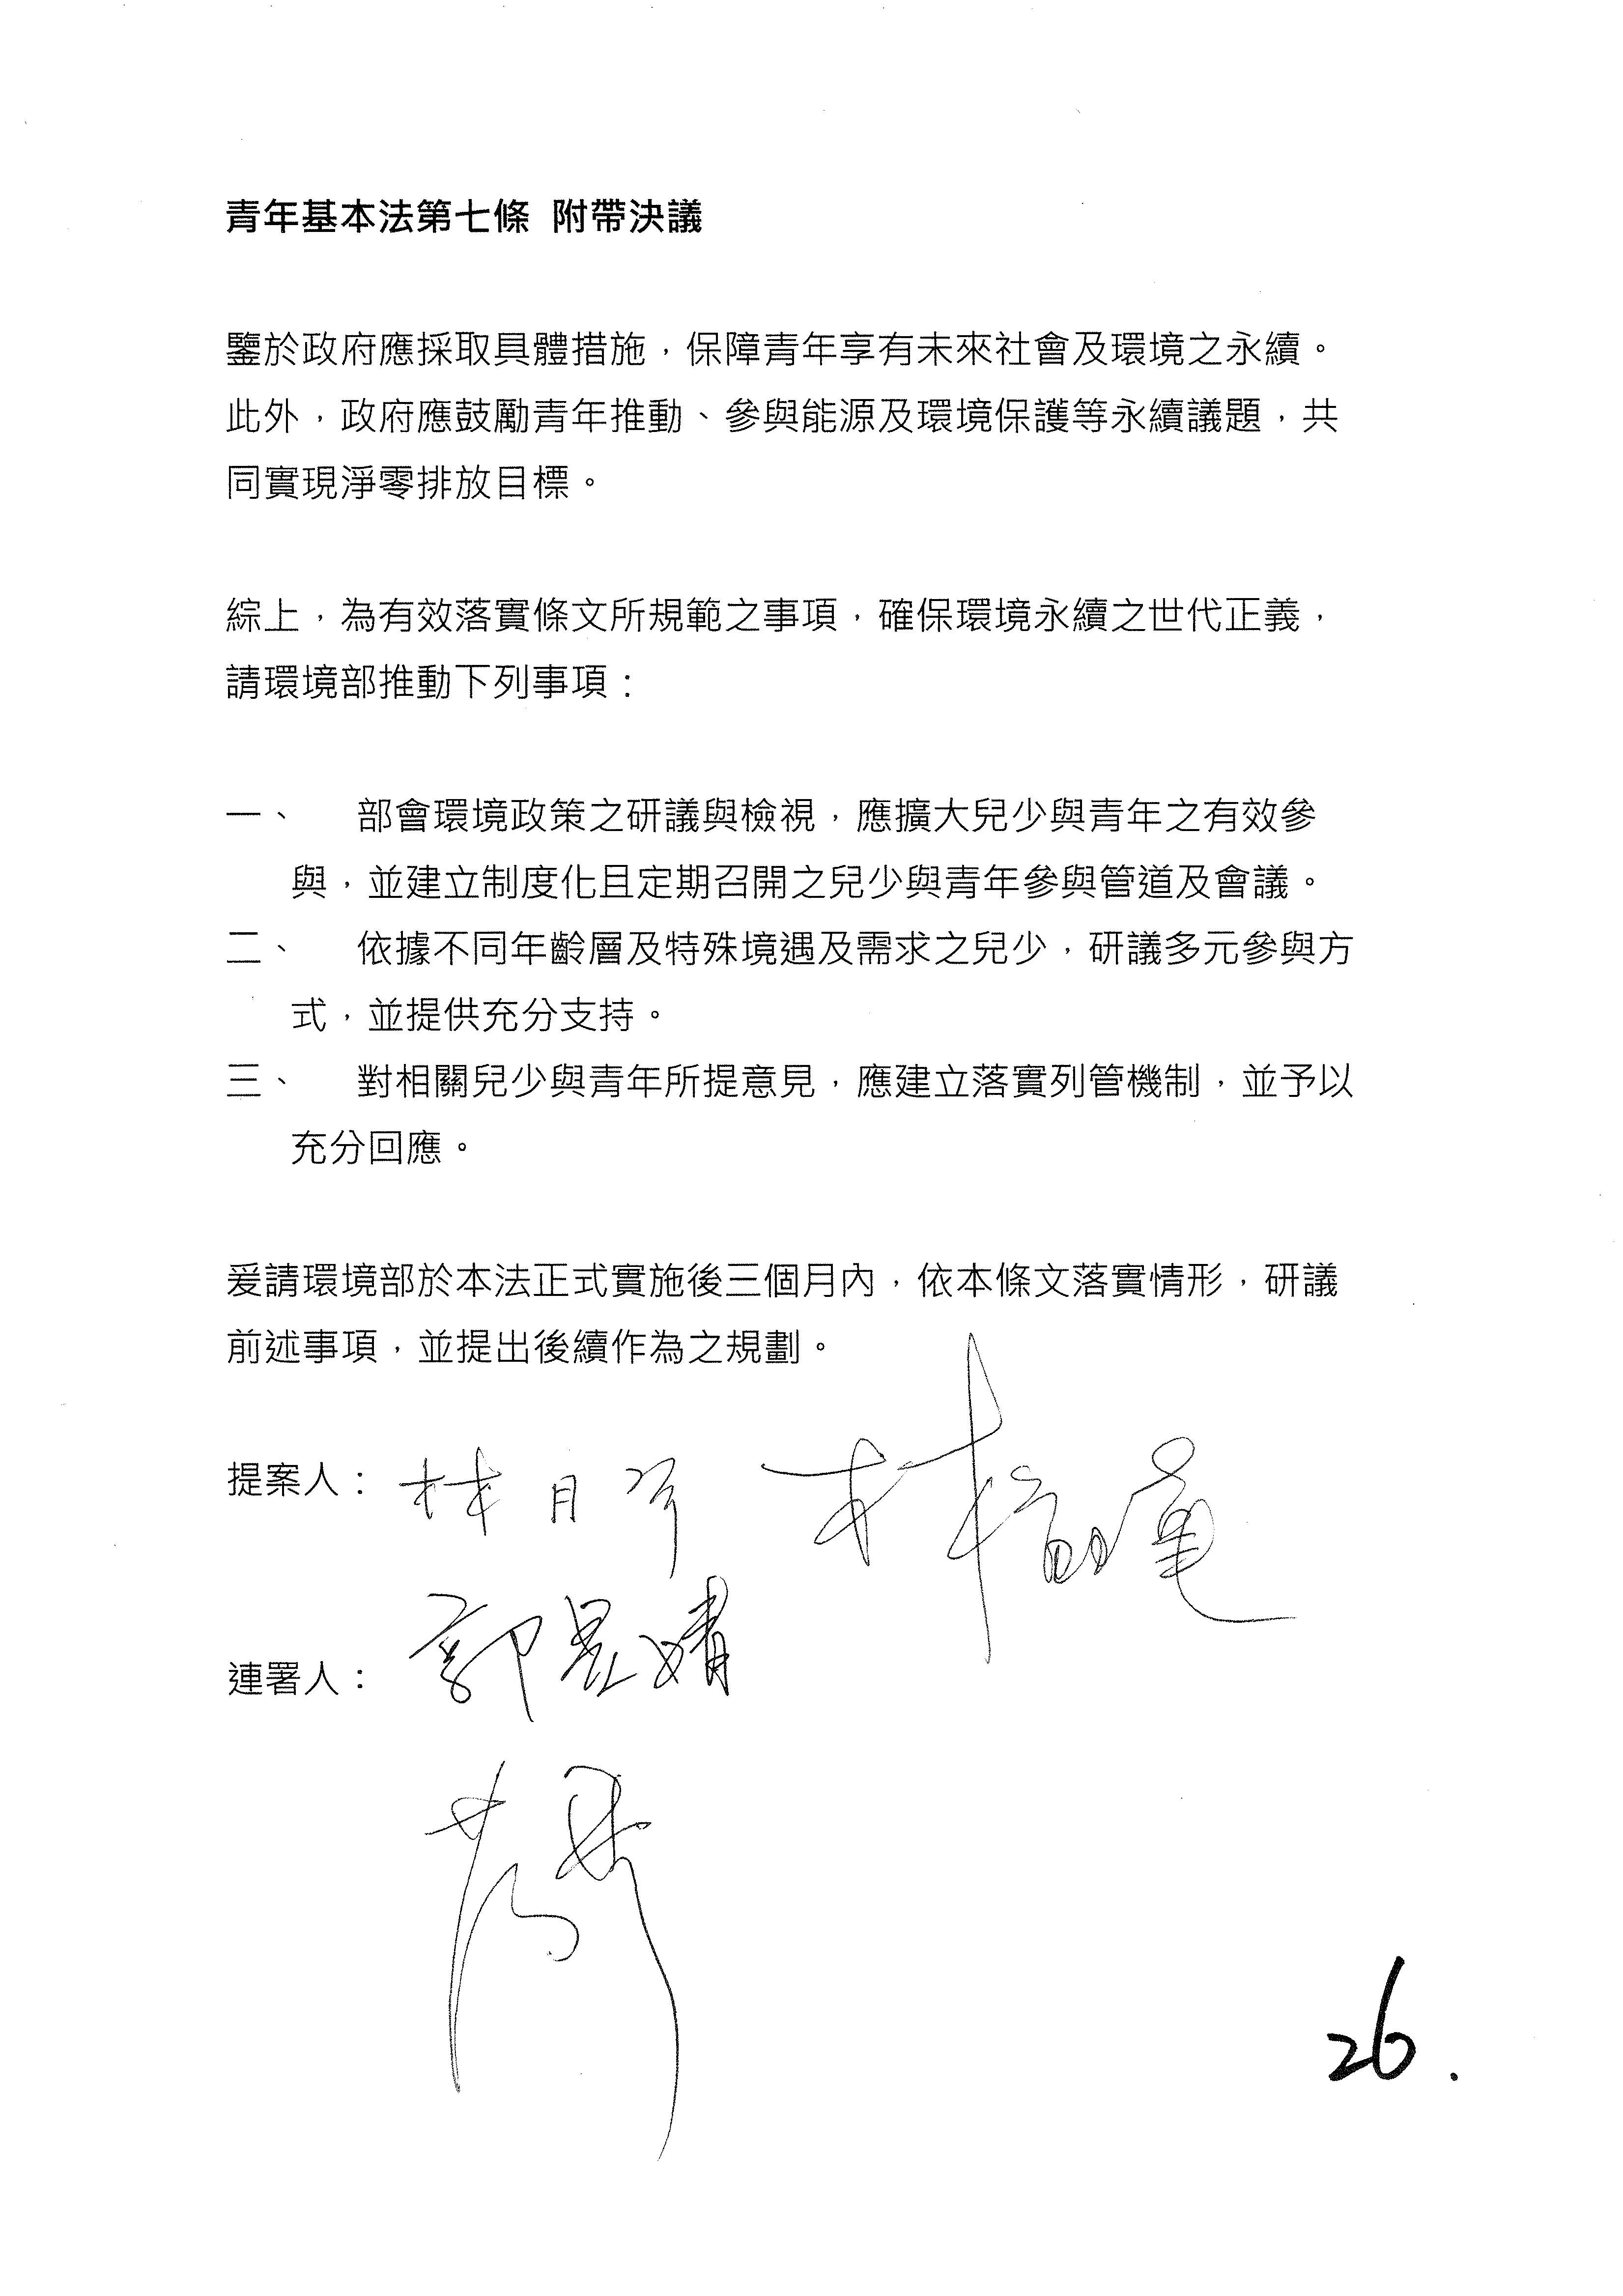 青年基本法第七條 附帶決議
鑒於政府應採取具體措施，保障青年享有未來社會及環境之永續。
此外，政府應鼓勵青年推動、參與能源及環境保護等永續議題，共
同實現淨零排放目標。
綜上，為有效落實條文所規範之事項，確保環境永續之世代正義，
請環境部推動下列事項：
一、 部會環境政策之研議與檢視，應擴大兒少與青年之有效參
與，並建立制度化且定期召開之兒少與青年參與管道及會議。
二、 依據不同年齡層及特殊境遇及需求之兒少，研議多元參與方
式，並提供充分支持。
三、 對相關兒少與青年所提意見，應建立落實列管機制，並予以
充分回應。
爰請環境部於本法正式實施後三個月內，依本條文落實情形，研議
前述事項，並提出後續作為之規劃。
提案人： 林月琴
連署人： 郭昱晴
26.